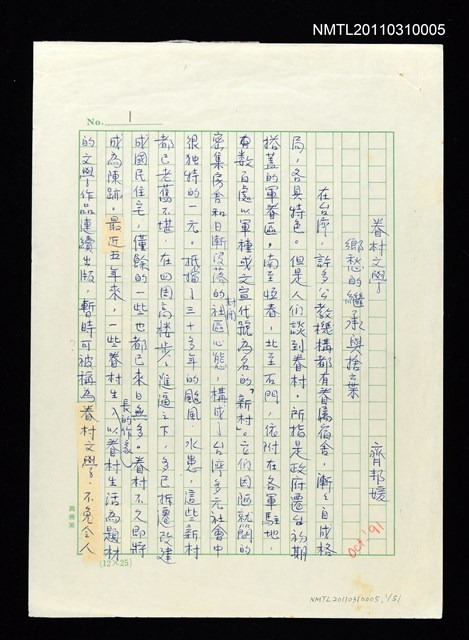 NMTL20110310005
No. 1
眷村文學
鄉愁的繼承與捨棄
齊邦媛
Oct '91
在台灣,許多公教機構都有眷屬宿舍,漸漸自成格
局,各具特色。但是人們談到眷村,所指是政府遷台初期
搭蓋的軍眷區,南至恆春,北至石門,依附在各軍駐地,
有數百處以軍種或文宣代號為名的「新村」。它們因陋就簡的
密集房舍和日漸沒落的封閉社區心態,構成了台灣多元社會中
很獨特的一元。抵擋了三十多年的颱風、水患,這些新村
都已老舊不堪,在四周高樓步步進逼之下,多已拆遷改建
成國民住宅,僅餘的一些也都已來日無多。眷村不久即將
成為陳跡。最近五年來,一些眷村生長的作家以眷村生活為題材
的文學作品連續出版,暫時可被稱為眷村文學,不免令人
(12×25)
NMTL20110310005, 1/51